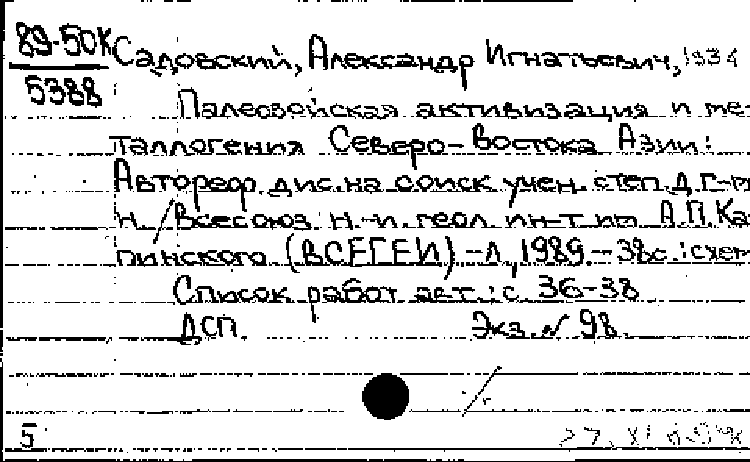 89-50К
5388
Садовский, Александр Игнатьевич, 1934
Палеозойская активизация и ме-
таллогения Северо-Востока Азии:
Автореф. дис. на соиск. учен. степ. д. г.-м.
н. / Всесоюз. н.-и. геол. ин-т им. А.П. Ка
пинского (ВСЕГЕИ) -Л, 1989.-38с.:схем
Список работ авт.: с. 36-38
ДСП. Экз. № 98.
5